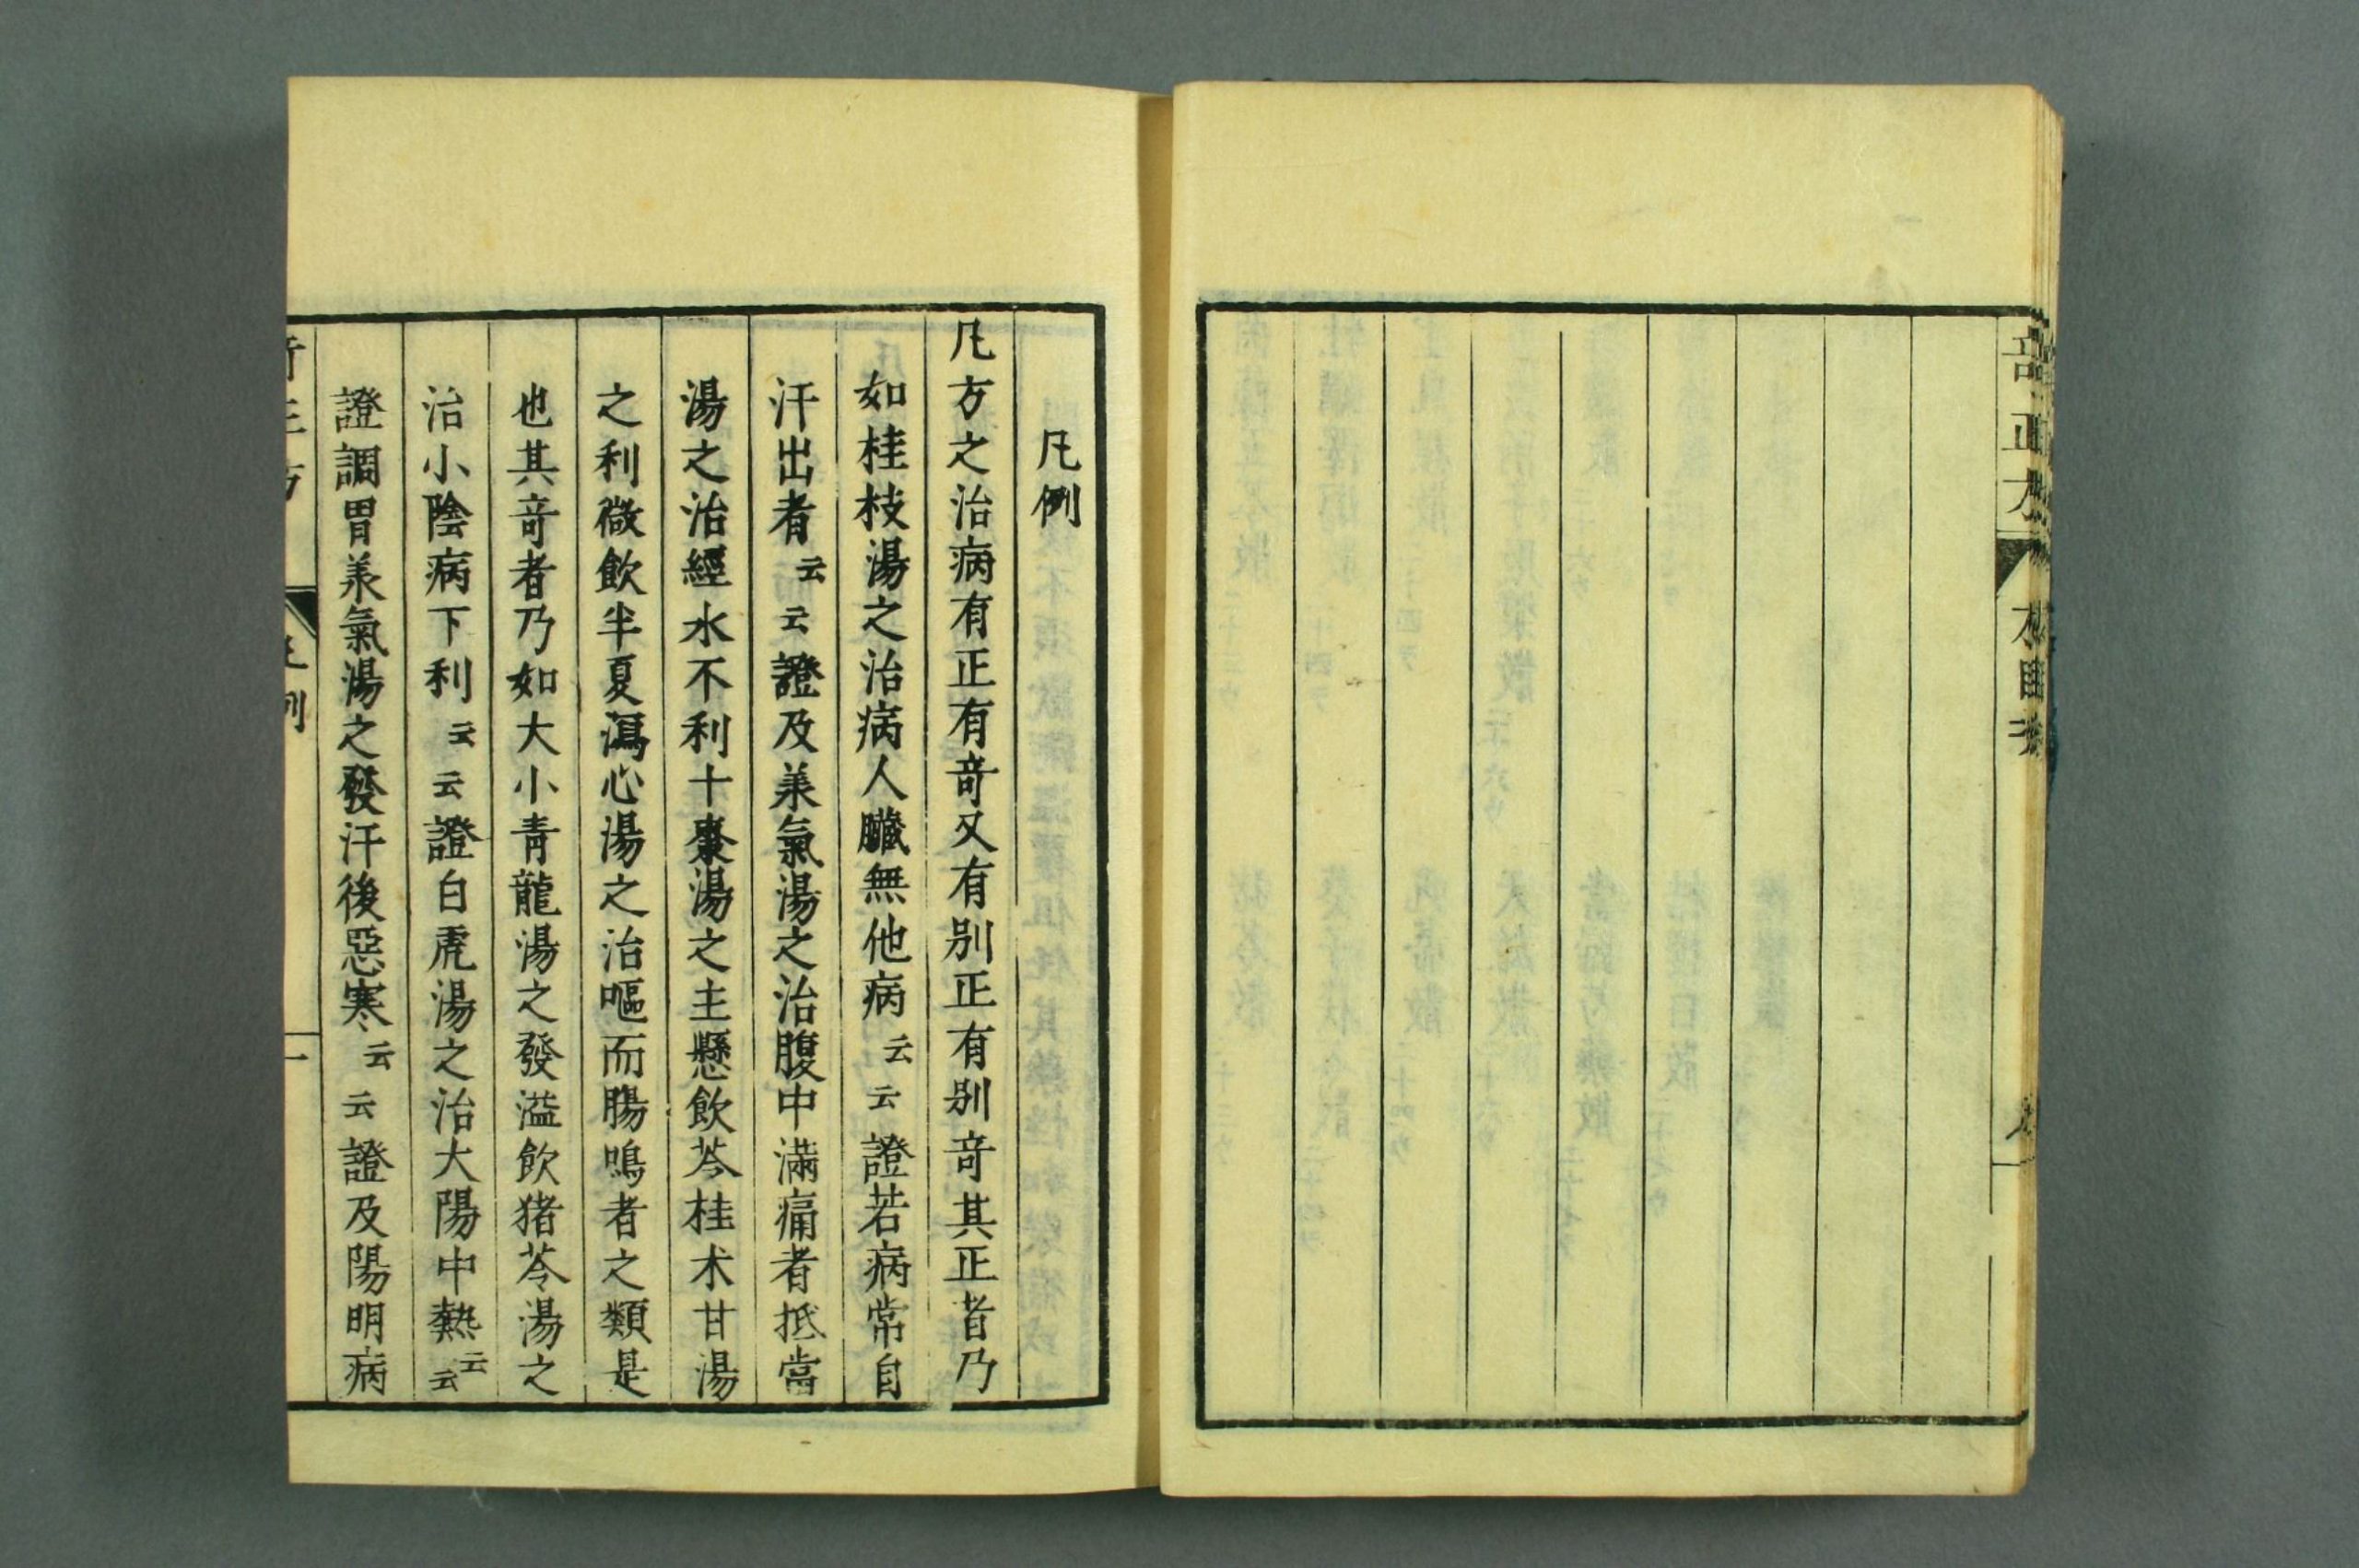 凡例
凡方之治病有正有奇又有别正有别奇其正者乃
如桂枝湯之治病人臓無他病云云證若病常自
汗出者云云證及美氣湯之治腹中滿痛者抵當
湯之治經水不利十棗湯之主懸飲苓桂朮甘湯
之利微飲半夏瀉心湯之治嘔而腸鳴者之類是
也其奇者乃如大小青龍湯之發溢飲猪苓湯之
治小陰病下利云云證白虎湯之治大陽中熱云云
證調胃美氣湯之發汗後惡寒云云證及陽明病